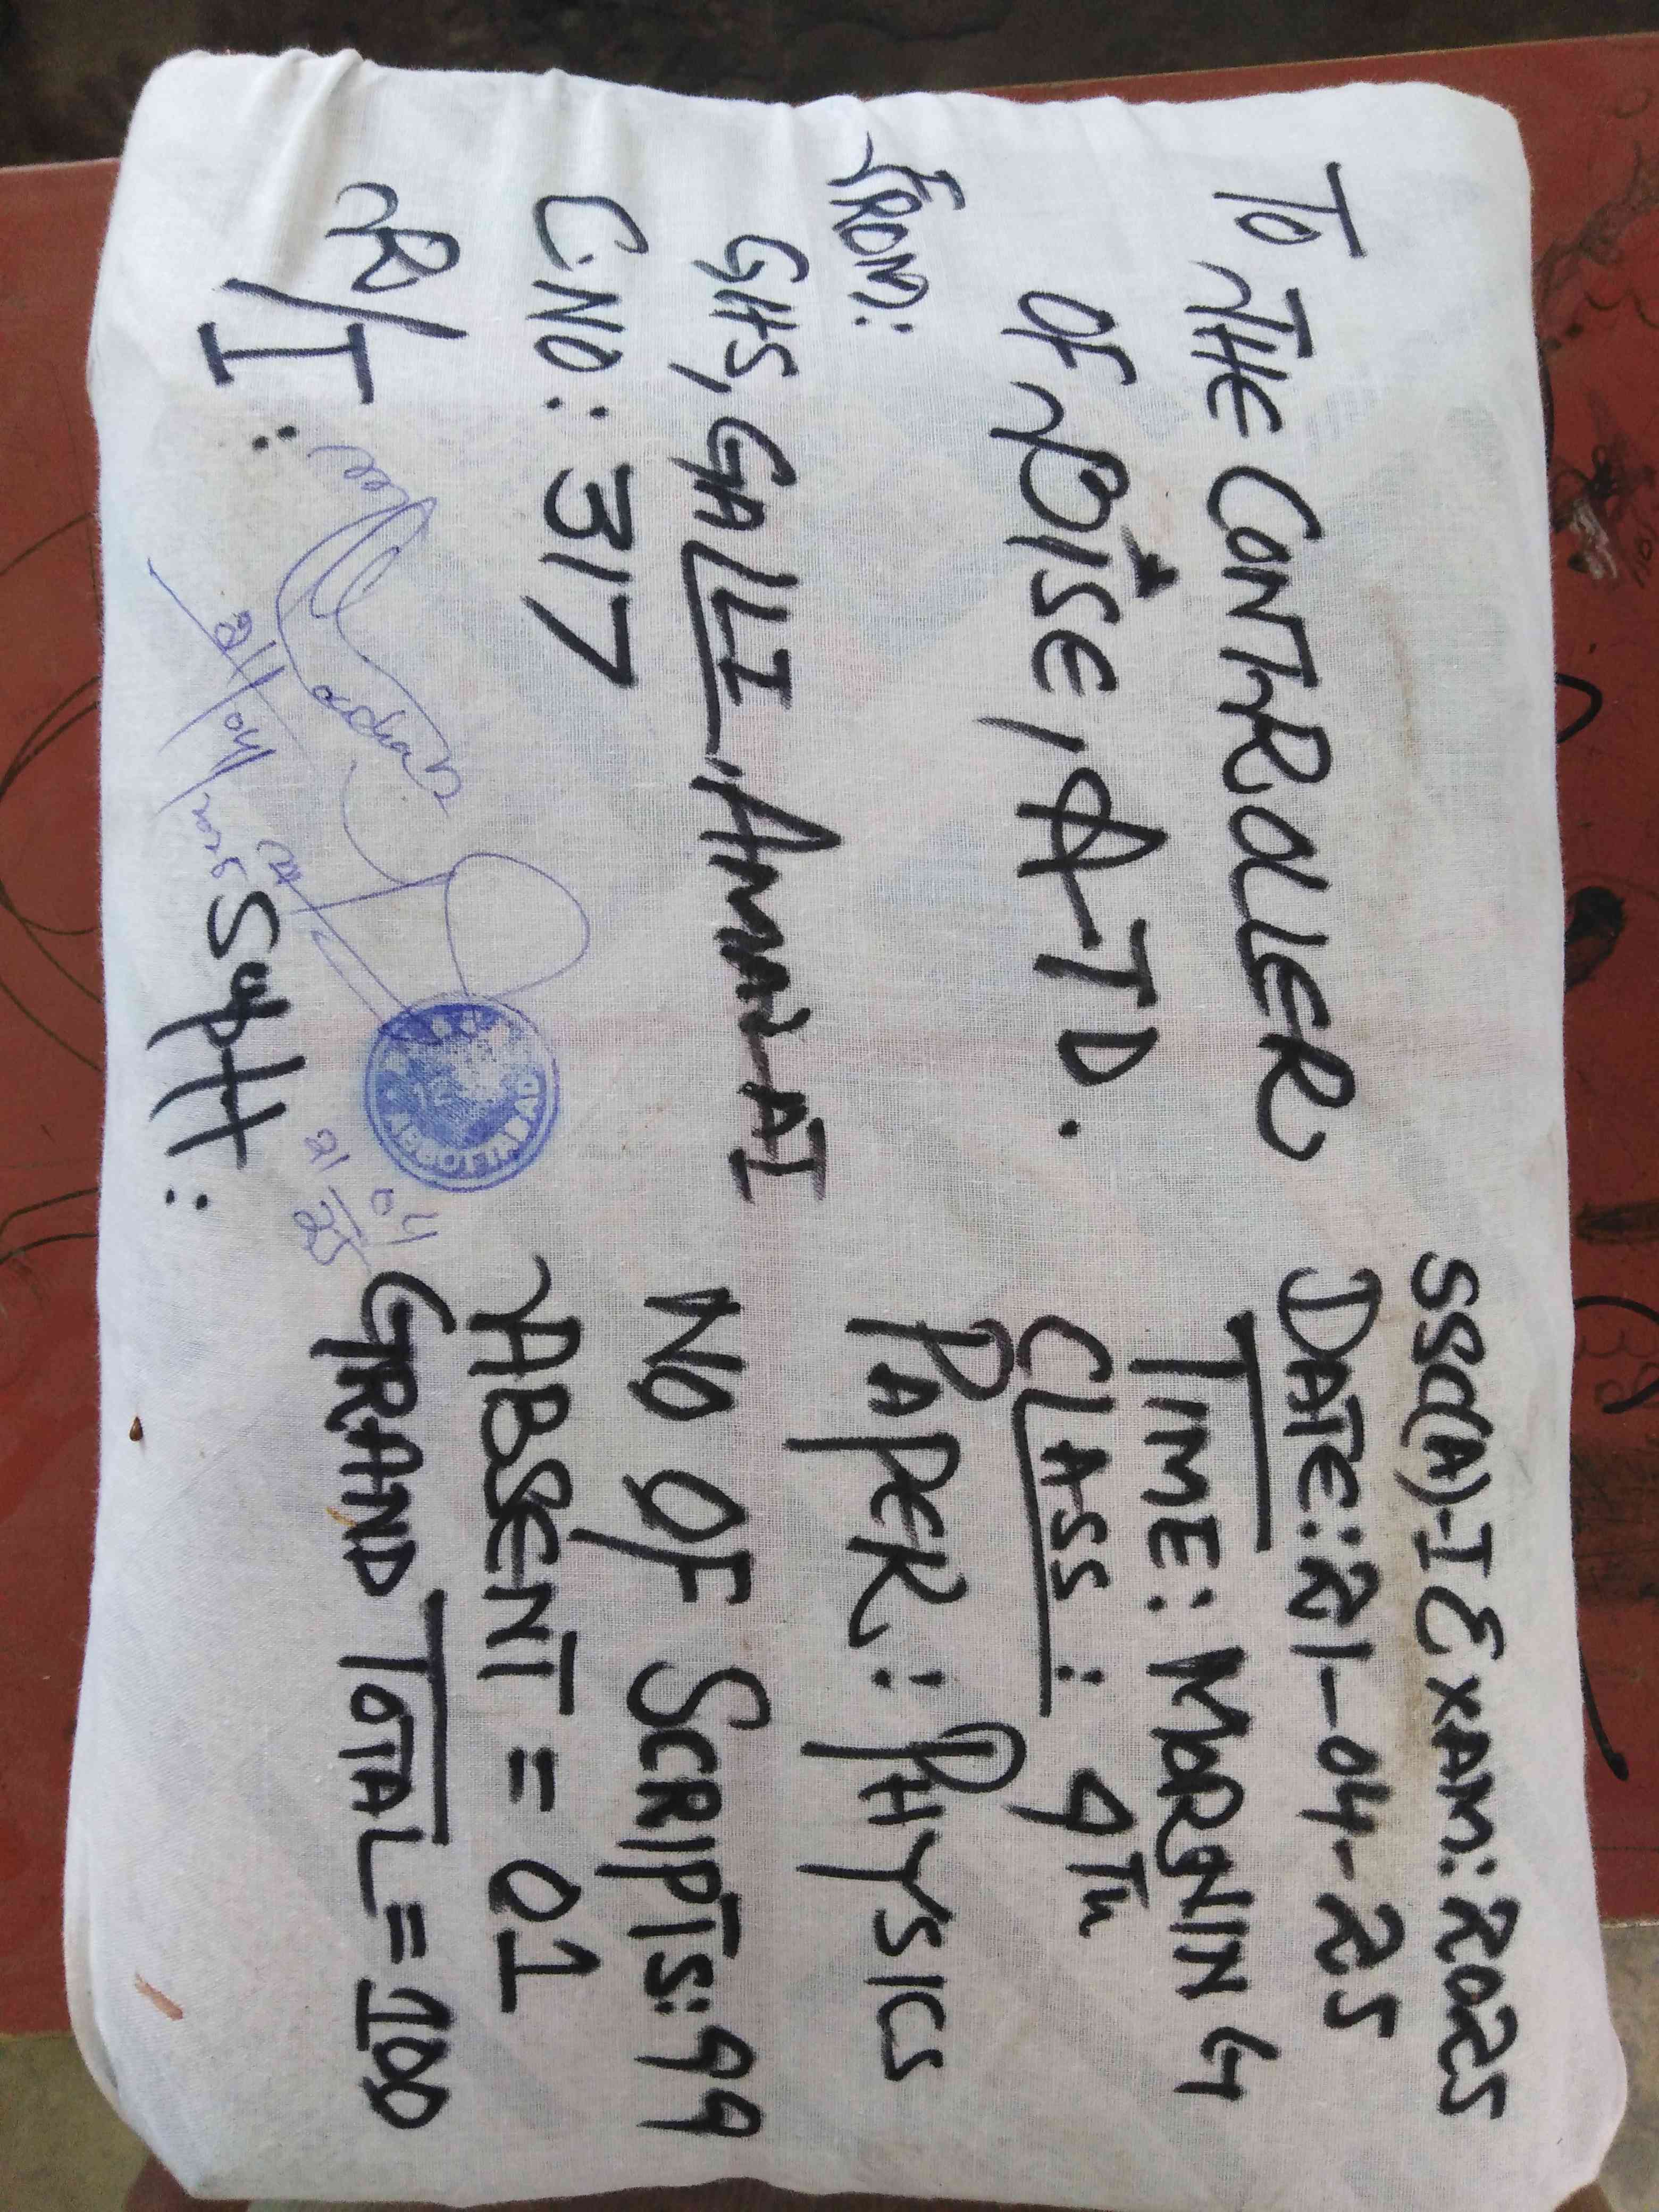 TO THE CONTROLLER
OF BISE, A-TD.
FROM:
GHS, GALLI AMAN-AI
C.NO: 317
R/I:
21/04/2025
Suptt:
21/04/25
SSC(A)-I EXAM: 2025
DATE: 21-04-25
TIME: MORNING
CLASS: 9TH
PAPER: PHYSICS
NO OF SCRIPTS: 99
ABSENT = 01
GRAND TOTAL = 100